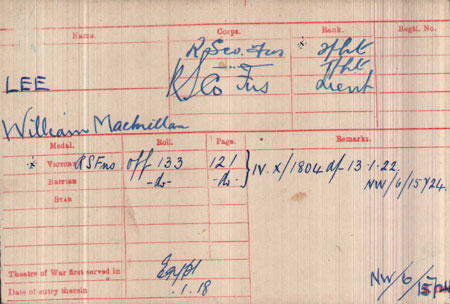 Name. Corps. Rank. Regtl. No.
R. Sco. Fus * 2/Lt
" T/Lt
LEE R Sco Fus Lieut
William Macmillan
Medal. Roll. Page. Remarks.
* Victory RSFus Off 133 121 } IV. X/1804 d/- 13.1.22.
British -do- -do- NW/6/15724.
Star
Theatre of War first served in Egypt
Date of entry therein .1.18
NW/6/